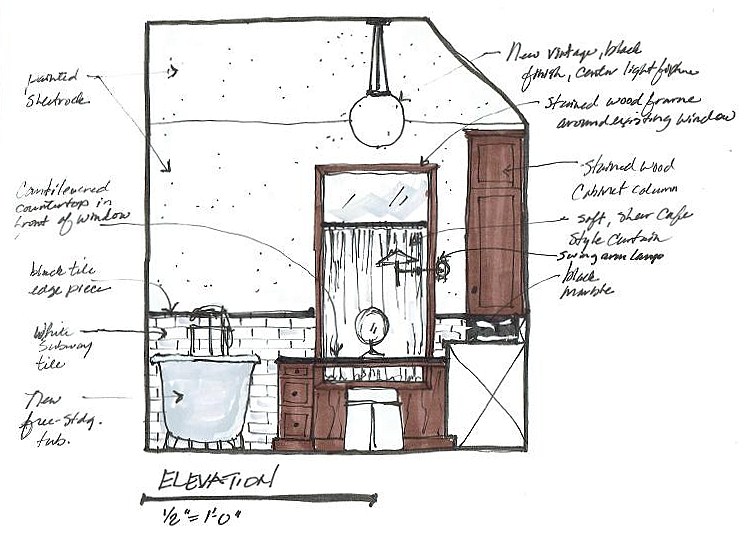 painted
Sheetrock
Cantilevered
countertop in
front of window
black tile
edge piece
White
Subway
tile
New
free-stdg.
tub.
New vintage, black
finish, center light fixture
Stained wood frame
around existing window
Stained wood
Cabinet column
Soft, Sheer Cafe
Style Curtain
Swing arm lamp
black
marble
ELEVATION
1/2"=1'-0"